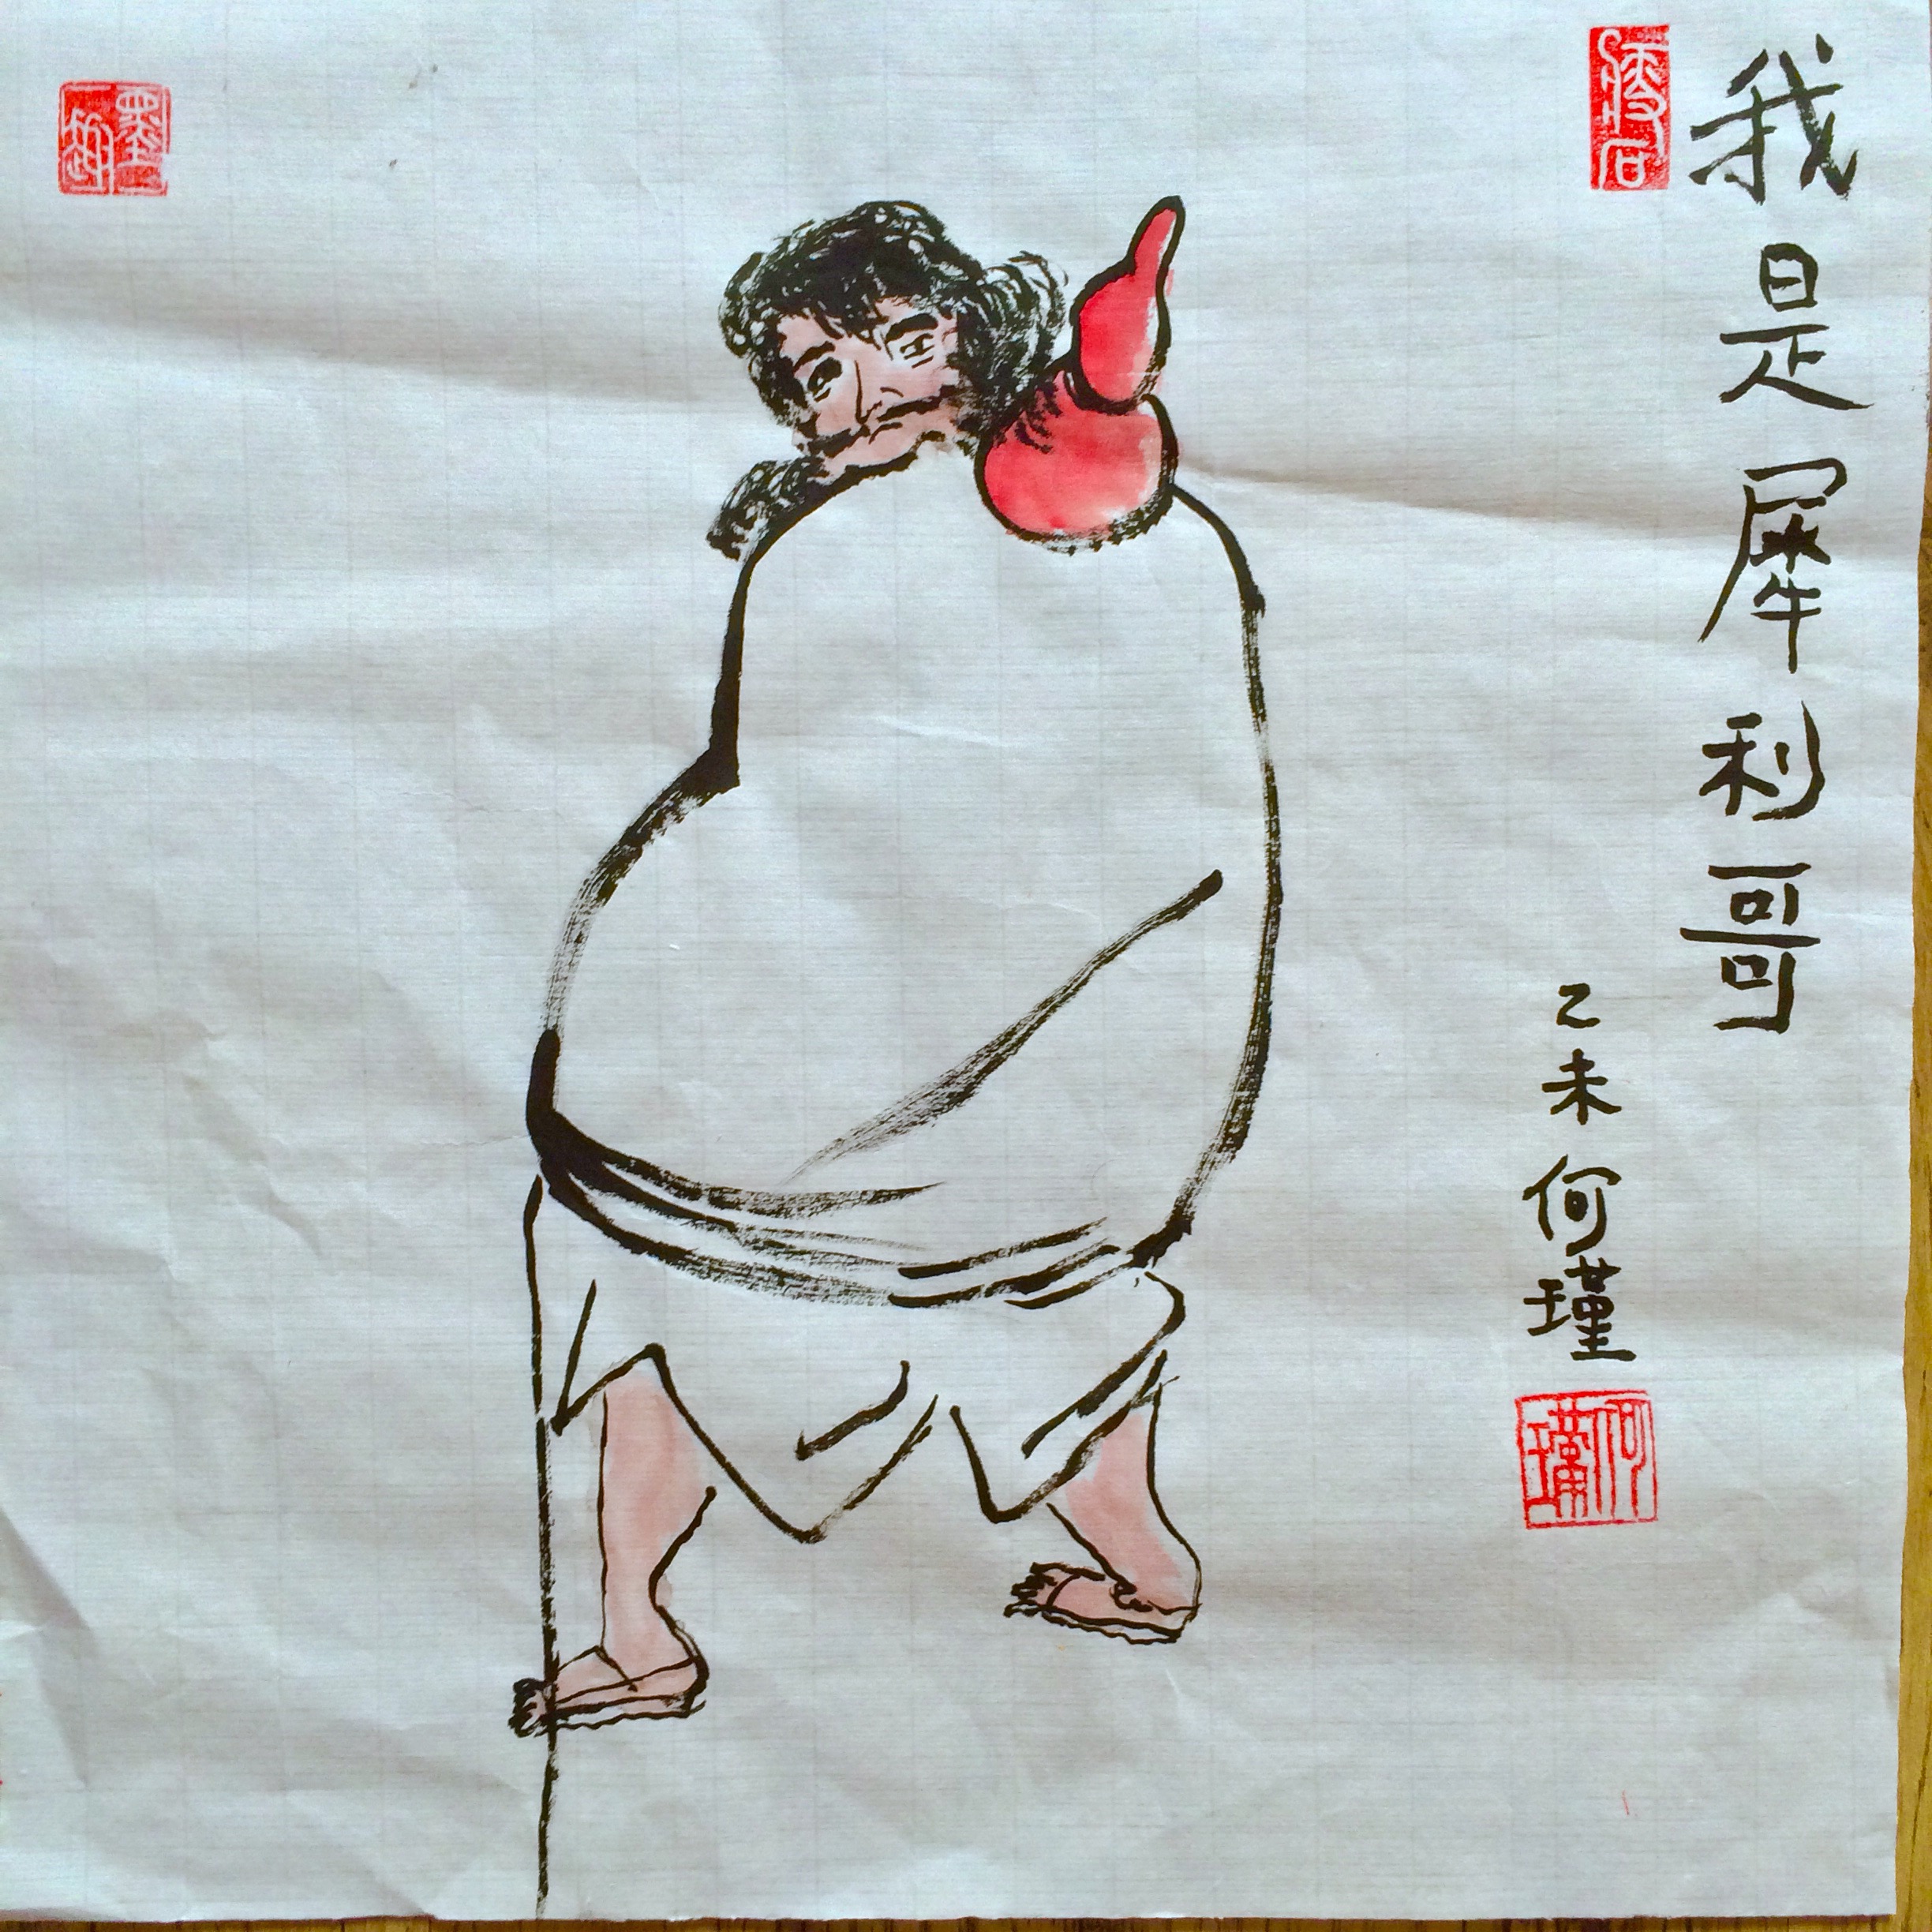 我是犀利哥
乙未何瑾
何瑾